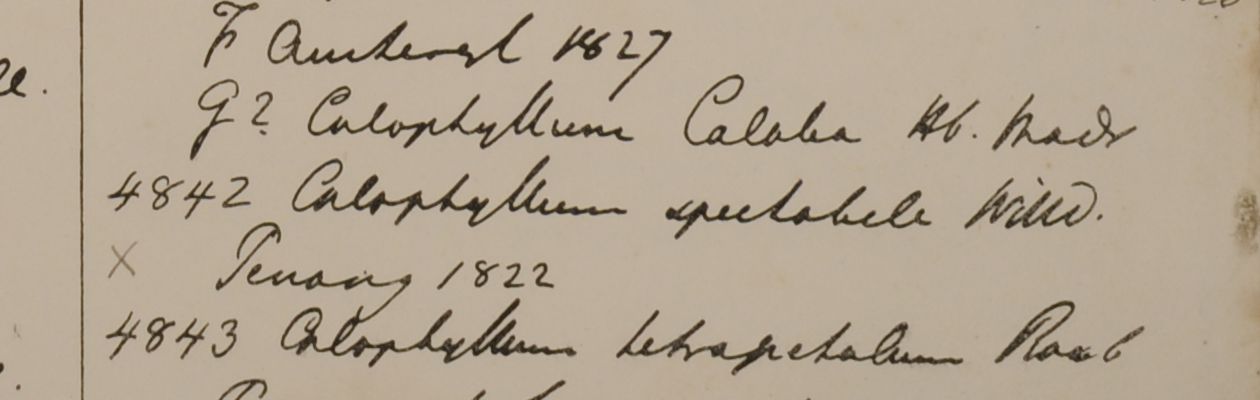 F Amherst 1827
G? Calophyllum Calaba Hb. Madr
4842 Calophyllum spectabile Willd.
x Penang 1822
4843 Calophyllum tetrapetalum Roxb